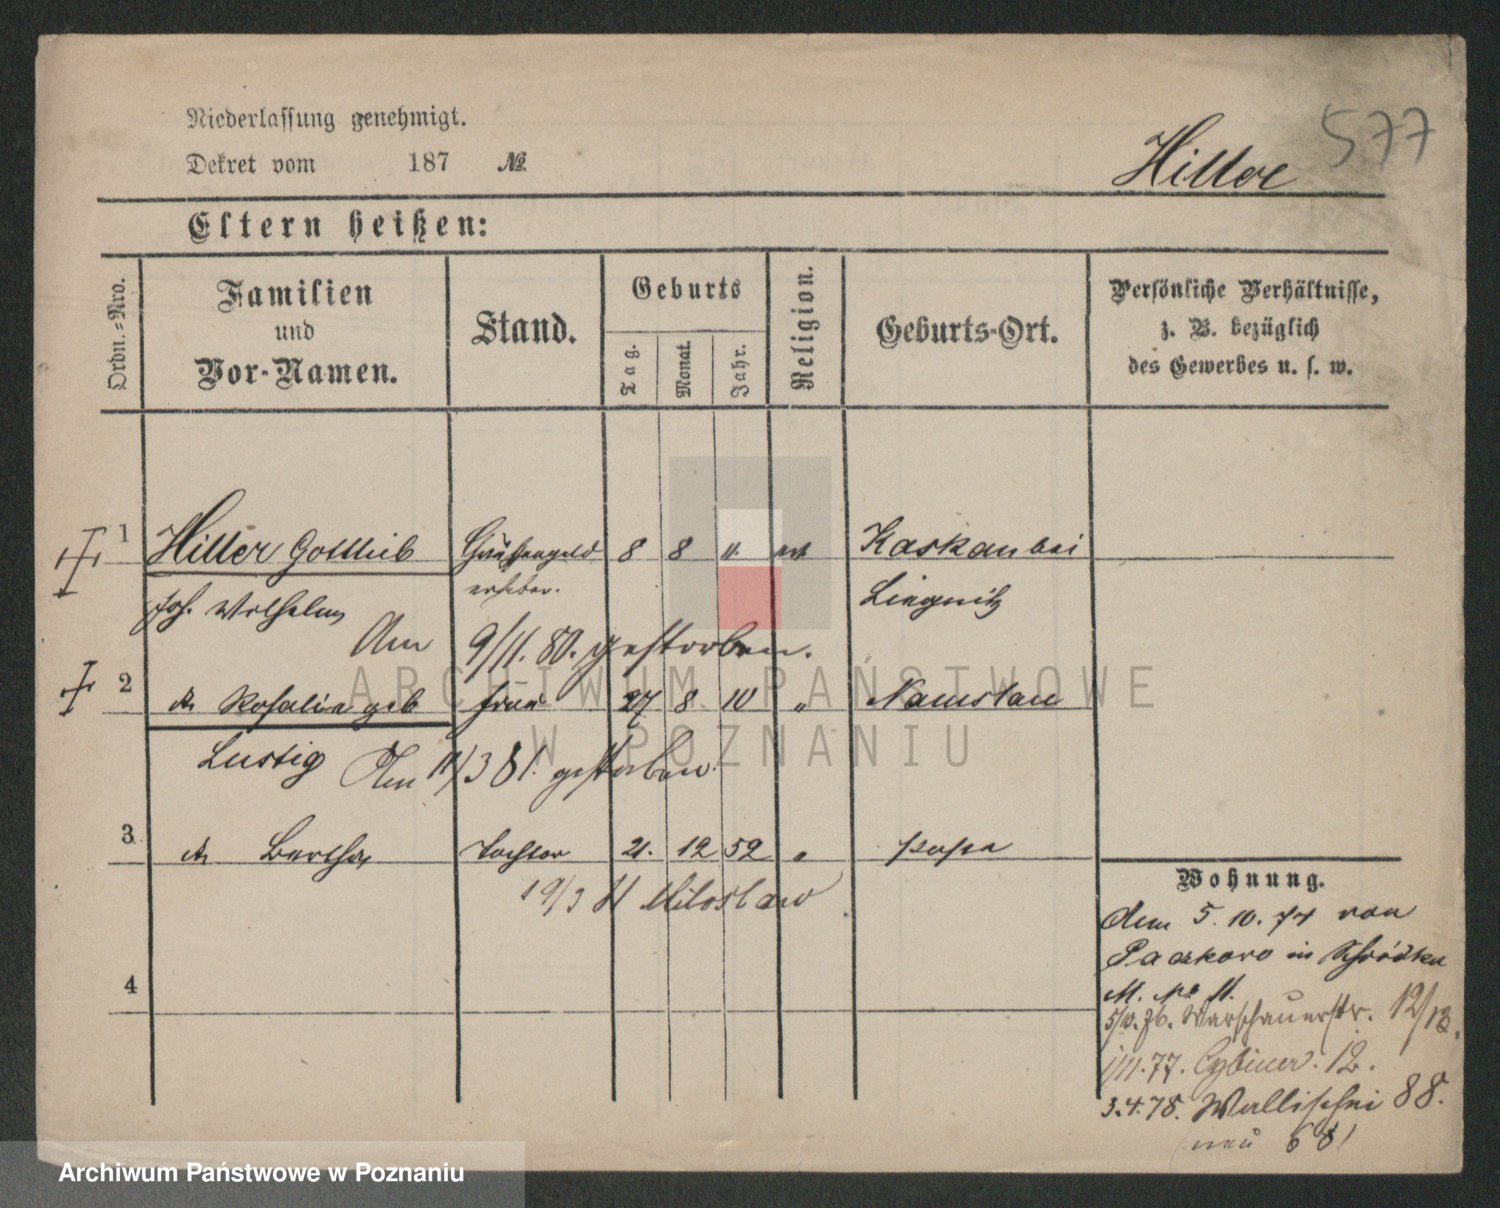 577
Niederlassung genehmigt.
Dekret vom 187 №
Hiller
Eltern heißen:
Ordn.=Nro.
Familien
und
Vor-Namen.
Stand.
Geburts
Tag.
Monat.
Jahr.
Religion.
Geburts-Ort.
Persönliche Verhältnisse,
z. B. bezüglich
des Gewerbes u. s. w.
1 Hiller Gottlieb 8 8 11. Kaskau bei
Joh. Wilhelm erheber. Liegnitz
Am 9/11. 80. gestorben.
2 Rosalie geb Frau 27 8 10 " Namslau
Lustig Am 11/3 81. gestorben.
3 Bertha Tochter 21. 12 52 " Posen
19/3 81 Miloslaw
4
Wohnung.
dem 5. 10. 74 von
Paczkowo in Schrodka
M. No 11.
5/10. 76. Warschauerstr. 12/13.
1/11. 77. Cybiner. 12.
3. 4. 78. Wallischei 88.
neu 68/
ARCHIWUM PAŃSTWOWE
W POZNANIU
Archiwum Państwowe w Poznaniu